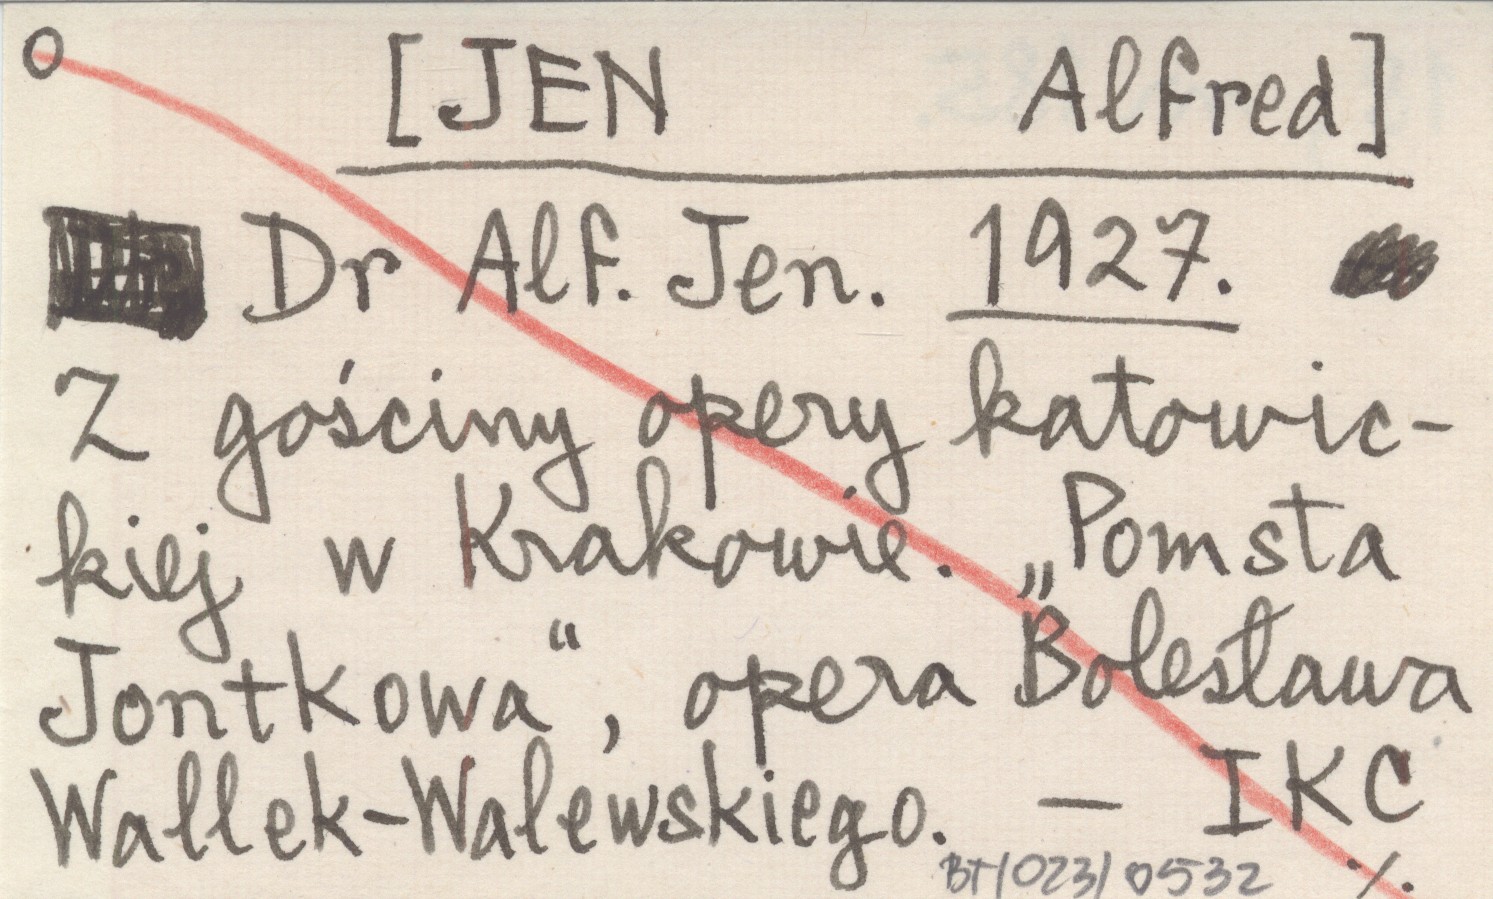 O [JEN Alfred]
Dr Alf. Jen. 1927.
Z gościny opery katowic-
kiej w Krakowie. „Pomsta
Jontkowa“, opera Bolesława
Wallek-Walewskiego. — IKC
BT/023/0532 ·/.